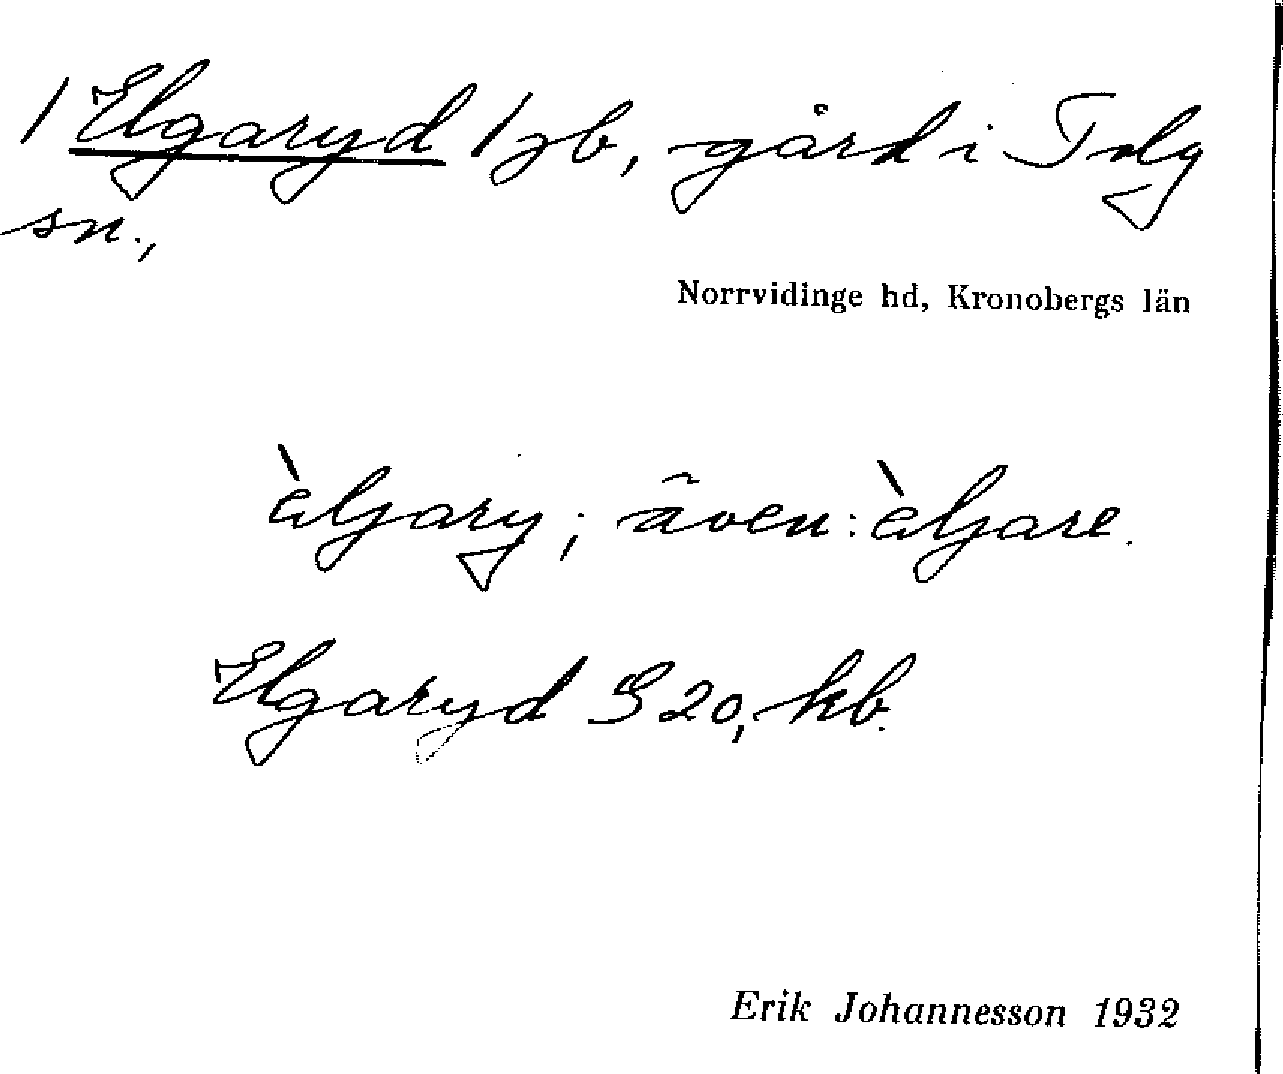 / Elgaryd / jb, gård i Tolg
sn.,
Norrvidinge hd, Kronobergs län
àljary; även: àljare.
Elgaryd S 20, kb.
Erik Johannesson 1932